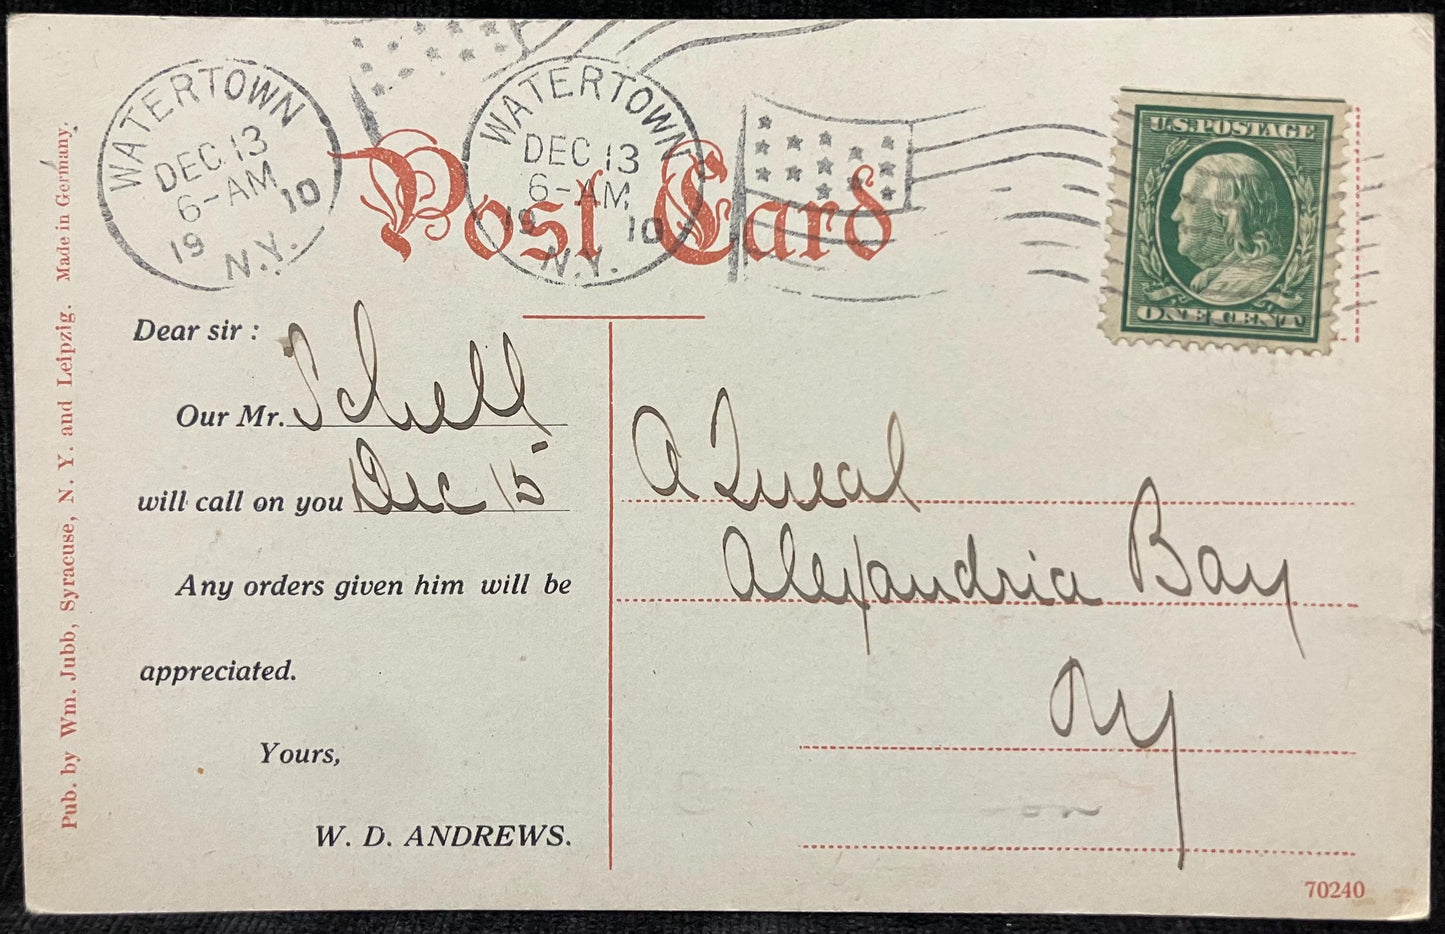 WATERTOWN
DEC 13
6-AM
19 10
N.Y.
WATERTOWN
DEC 13
6-AM
19 10
N.Y.
Post Card
U.S. POSTAGE
ONE CENT
Pub. by Wm. Jubb, Syracuse, N. Y. and Leipzig. Made in Germany.
Dear sir :
Our Mr. Schell
will call on you Dec 15
Any orders given him will be
appreciated.
Yours,
W. D. ANDREWS.
A Queal
Alexandria Bay
NY
70240